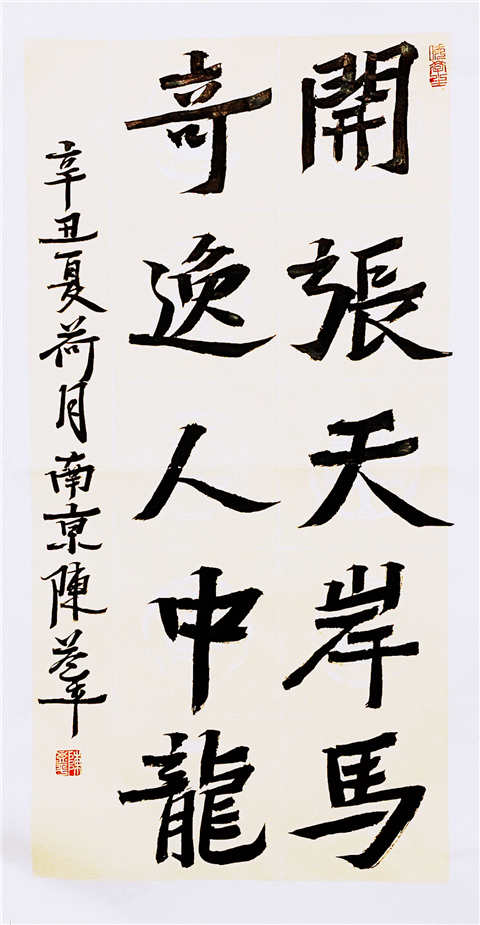 開張天岸馬
奇逸人中龍
辛丑夏荷月南京陳